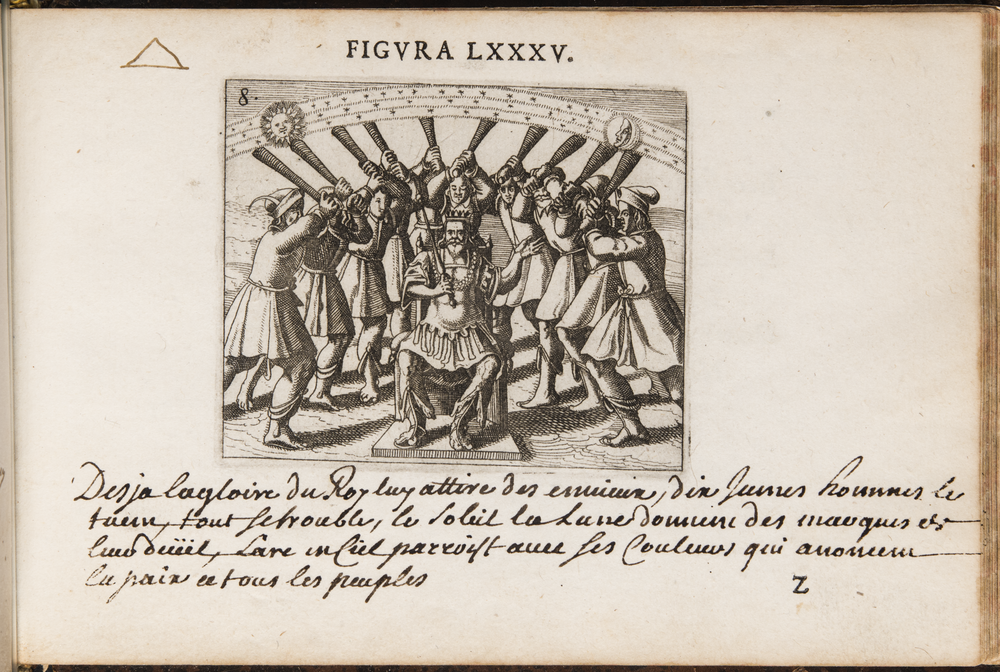 FIGVRA LXXXV.
8.
Desja lagloire du Roy luy attire des envieux, dix Jeunes hommes le
tuent, tout se trouble, le Soleil la Lune donnent des marques de
leur deüil, Larc in Ciel parroist avec ses Couleurs qui anoncent
la paix a tous les peuples
Z